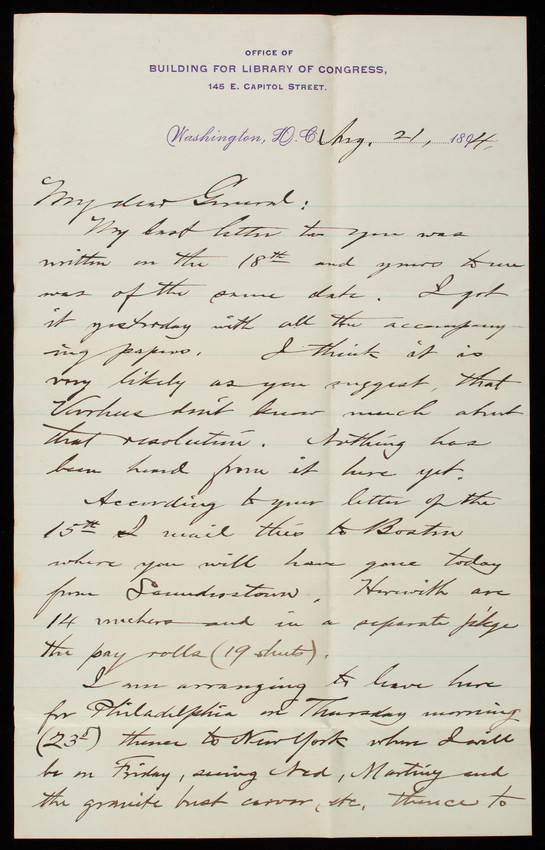 OFFICE OF
BUILDING FOR LIBRARY OF CONGRESS,
145 E. CAPITOL STREET.
Washington, D.C. Aug. 21, 1894
My dear General:
My last letter to you was
written on the 18th and yours to me
was of the same date. I got
it yesterday with all the accompany-
ing papers. I think it is
very likely as you suggest, that
Voorhees don't know much about
that resolution. Nothing has
been heard from it here yet.
According to your letter of the
15th I mail this to Boston
where you will have gone today
from Saunderstown. Herewith are
14 vouchers and in a separate p'kge
the pay rolls (19 sheets).
I am arranging to leave here
for Philadelphia on Thursday morning
(23d) thence to New York where I will
be on Friday, seeing Ned, Martiny and
the granite bust carver, etc, thence to